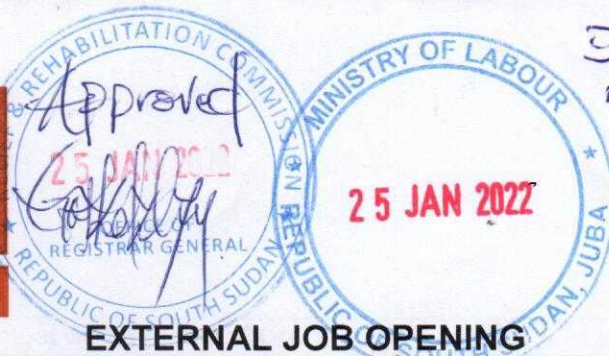 RELIEF & REHABILITATION COMMISSION
Approved
25 JAN 2022
REGISTRAR GENERAL
REPUBLIC OF SOUTH SUDAN
MINISTRY OF LABOUR
25 JAN 2022
REPUBLIC OF SOUTH SUDAN, JUBA
EXTERNAL JOB OPENING